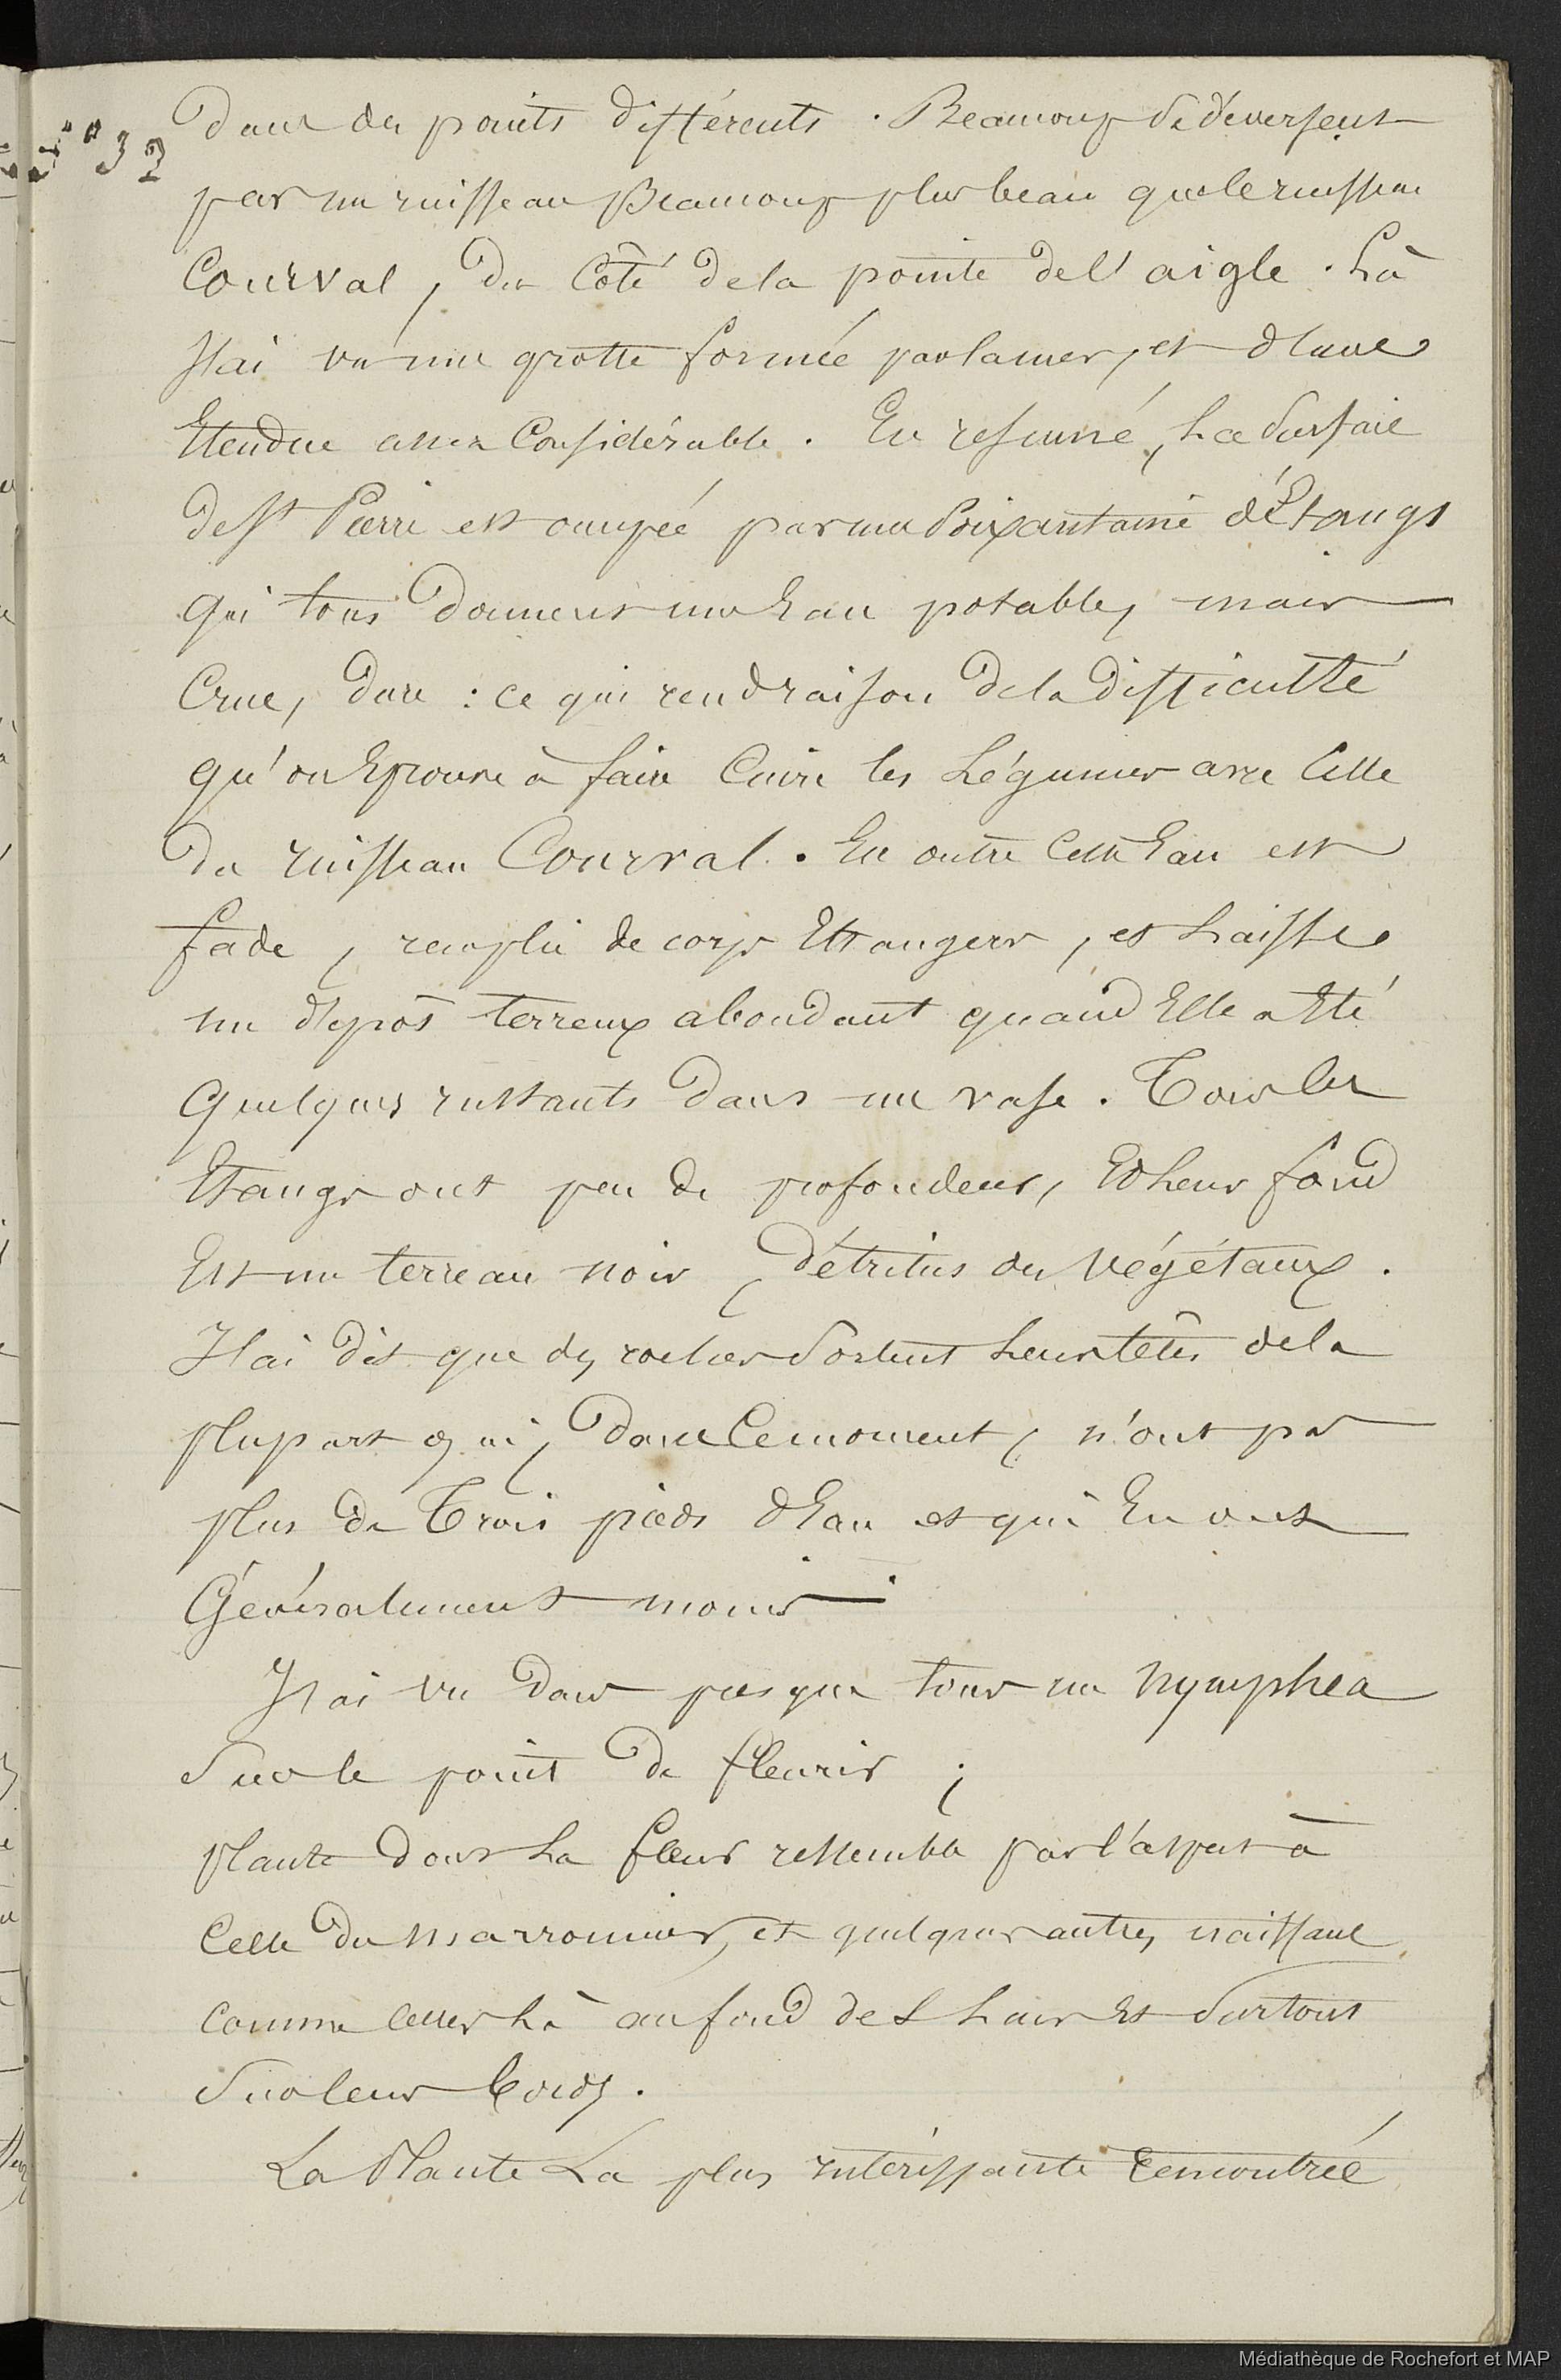 32
dans des points différents. Beaucoup se déversent
par un ruisseau Beaucoup plus beau que le ruisseau
Courval, du Côté de la pointe de l'aigle. Là
J'ai vu une grotte formée par la mer, et d'une
Etendue assez Considérable. En résumé, La Surface
de St Pierre est occupée par une Soixantaine d'Etangs
qui tous donnent une Eau potable, mais
Crue, dure : ce qui rend raison de la difficulté
qu'on Eprouve à faire Cuire les Légumes avec Celle
du ruisseau Courval. En outre Cette Eau est
fade, remplie de corps Etrangers, et Laisse
un dépôt terreux abondant quand Elle a Eté
quelques instants dans un vase. Tous les
Etangs ont peu de profondeur, Et Leur fond
Est un terreau noir, détritus des végétaux.
J'ai dit que des rochers Sortent Leurs têtes de la
plupart qui, dans Ce moment, n'ont pas
plus de Trois pieds d'Eau et qui En ont
Généralement moins.
J'ai vu dans presque tous un nymphea
Sur le point de fleurir ;
plante dont La fleur ressemble par l'aspect à
Celle du marronnier, et quelques autres, naissant
comme Celles Là au fond des Lacs Et Surtout
Sur leurs bords.
La Plante La plus intéressante rencontrée
Médiathèque de Rochefort et MAP